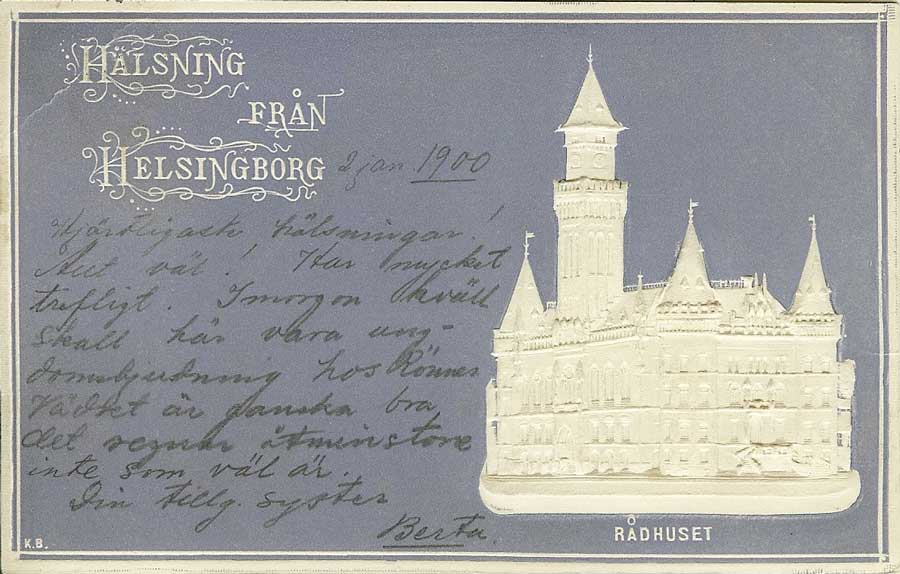 HÄLSNING
FRÅN
HELSINGBORG
2 jan 1900
Hjärtligast hälsningar!
Allt väl! Har mycket
trefligt. I morgon kväll
skall här vara ung-
domsbjudning hos Rönnes
Vädret är ganska bra,
det regnar åtminstone
inte som väl är.
Din tillg. syster
Berta
RÅDHUSET
K.B.